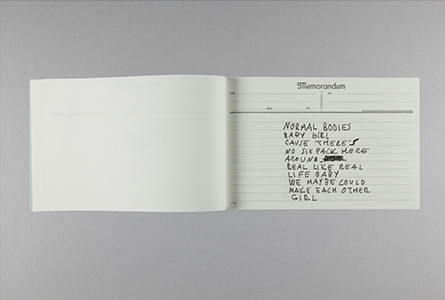 Memorandum
NORMAL BODIES
BABY GIRL
CAUSE THERE'S
NO SIX PACK HERE
AROUND
REAL LIKE REAL
LIFE BABY
WE MAYBE COULD
MAKE EACH OTHER
GIRL